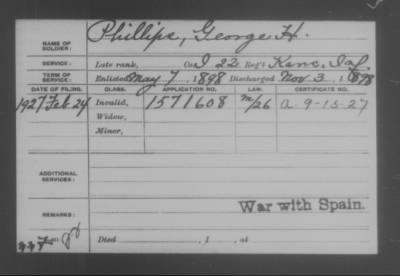 NAME OF SOLDIER: Phillips, George H.
SERVICE: Late rank, Co. I 22 Reg't Kans. Inf.
TERM OF SERVICE: Enlisted May 7, 1898 Discharged Nov. 3, 1898
DATE OF FILING. CLASS. APPLICATION NO. LAW. CERTIFICATE NO.
1927 Feb 24 Invalid, 1571608 m/26 A-9-15-27
Widow,
Minor,
ADDITIONAL SERVICES:
War with Spain.
REMARKS:
Died , 1 , at